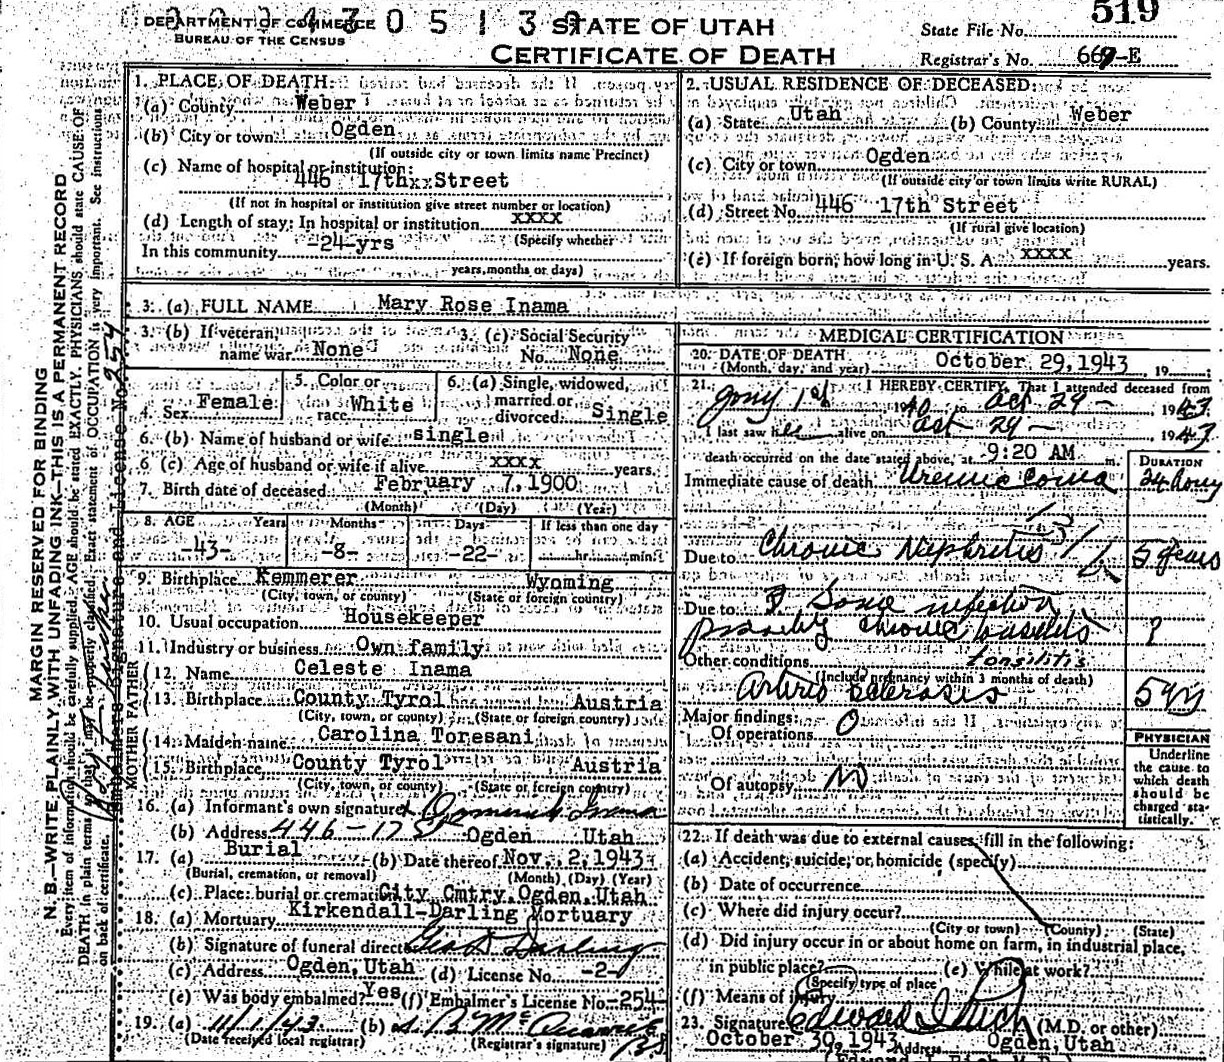 DEPARTMENT OF COMMERCE
BUREAU OF THE CENSUS
STATE OF UTAH
CERTIFICATE OF DEATH
519
State File No.
Registrar's No. 669-E
MARGIN RESERVED FOR BINDING
N. B.—WRITE PLAINLY, WITH UNFADING INK—THIS IS A PERMANENT RECORD
Every item of information should be carefully supplied. AGE should be stated EXACTLY. PHYSICIANS should state CAUSE OF
DEATH in plain terms, that it may be properly classified. Exact statement of OCCUPATION is very important. See instructions
on back of certificate.
Embalmers Signature and License No. 254
1. PLACE OF DEATH:
(a) County Weber
(b) City or town Ogden
(If outside city or town limits name Precinct)
(c) Name of hospital or institution:
446 17th xx Street
(If not in hospital or institution give street number or location)
(d) Length of stay: In hospital or institution xxxx
(Specify whether
In this community -24-yrs
years, months or days)
2. USUAL RESIDENCE OF DECEASED:
(a) State Utah (b) County Weber
(c) City or town Ogden
(If outside city or town limits write RURAL)
(d) Street No. 446 17th Street
(If rural give location)
(e) If foreign born, how long in U. S. A. xxxx years.
3. (a) FULL NAME Mary Rose Inama
3. (b) If veteran, name war None
3. (c) Social Security No. None
4. Sex Female
5. Color or race White
6. (a) Single, widowed, married or divorced. Single
6. (b) Name of husband or wife single
6 (c) Age of husband or wife if alive xxxx years.
7. Birth date of deceased February 7, 1900
(Month) (Day) (Year)
8. AGE Years Months Days If less than one day
-43- -8- -22- hr. min.
9. Birthplace Kemmerer Wyoming
(City, town, or county) (State or foreign country)
10. Usual occupation Housekeeper
11. Industry or business Own family
FATHER
12. Name Celeste Inama
13. Birthplace County Tyrol Austria
(City, town, or county) (State or foreign country)
MOTHER
14. Maiden name Carolina Toresani
15. Birthplace County Tyrol Austria
(City, town, or county) (State or foreign country)
16. (a) Informant's own signature Inama
(b) Address 446-17 St Ogden Utah
17. (a) Burial (b) Date thereof Nov. 2, 1943
(Burial, cremation, or removal) (Month) (Day) (Year)
(c) Place: burial or cremation City Cmtry, Ogden, Utah
18. (a) Mortuary Kirkendall-Darling Mortuary
(b) Signature of funeral director Geo D Darling
(c) Address Ogden, Utah (d) License No. -2-
(e) Was body embalmed? Yes (f) Embalmer's License No. -254-
19. (a) 11/1/43 (b)
(Date received local registrar) (Registrar's signature)
MEDICAL CERTIFICATION
20. DATE OF DEATH October 29, 1943, 19
(Month, day, and year)
21. I HEREBY CERTIFY, That I attended deceased from
Jany 1st 1940 to Oct 29 - 1943
I last saw her alive on Oct 29 - , 1943
death occurred on the date stated above, at 9:20 AM m.
DURATION
Immediate cause of death Uremic Coma 24 hours
131
Due to Chronic Nephritis 5 years
Due to ? Some infection
possibly chronic tonsilitis ?
tonsilitis
Other conditions
(Include pregnancy within 3 months of death)
Arterio sclerosis 5 yrs
Major findings:
Of operations O
Of autopsy No
PHYSICIAN
Underline
the cause to
which death
should be
charged sta-
tistically.
22. If death was due to external causes, fill in the following:
(a) Accident, suicide, or homicide (specify)
(b) Date of occurrence
(c) Where did injury occur?
(City or town) (County) (State)
(d) Did injury occur in or about home on farm, in industrial place,
in public place? (e) While at work?
(Specify type of place
(f) Means of injury
23. Signature Edward I Rich (M.D. or other)
October 30, 1943 Address Ogden, Utah